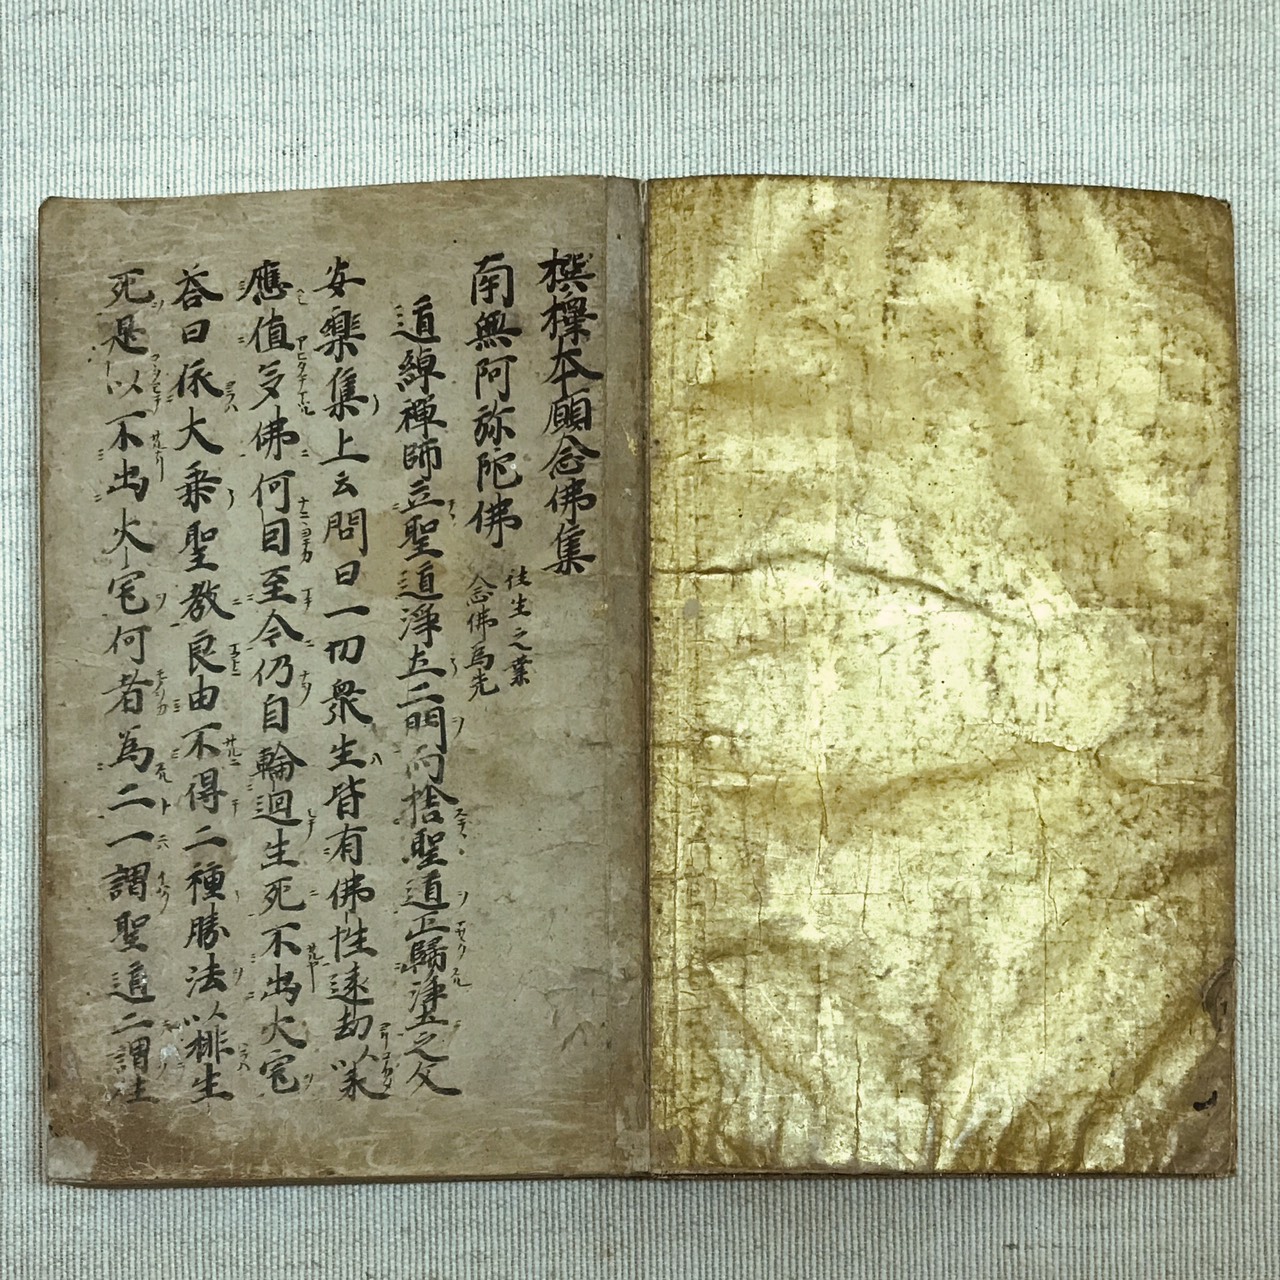 撰擇本願念佛集
南無阿弥陀佛 往生之業
念佛為先
道綽禅師立聖道淨土二門而捨聖道正歸淨土之文
安樂集上云問曰一切衆生皆有佛性遠劫以来
應值多佛何因至今仍自輪迴生死不出火宅
荅曰依大乘聖教良由不得二種勝法以排生
死是以不出火宅何者為二一謂聖道二謂往